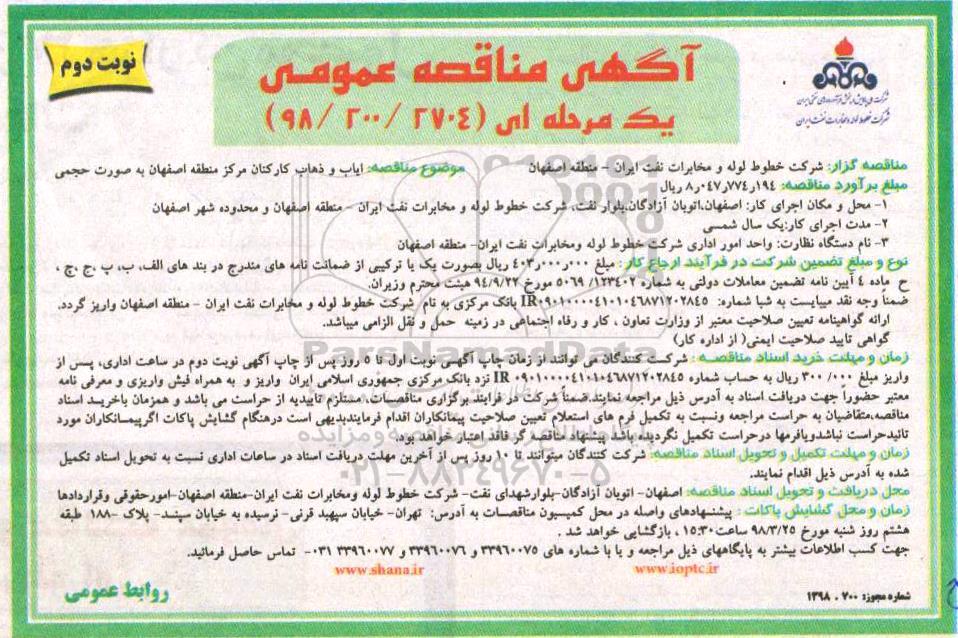 نوبت دوم
آگهی مناقصه عمومی
یک مرحله ای (۲۷۰۴ /۲۰۰ /۹۸)
شرکت خطوط لوله و مخابرات نفت ایران
مناقصه گزار: شرکت خطوط لوله و مخابرات نفت ایران - منطقه اصفهان موضوع مناقصه: ایاب و ذهاب کارکنان مرکز منطقه اصفهان به صورت حجمی
مبلغ برآورد مناقصه: ۸ر۰۴۷ر۷۷۴ر۱۹۴ ریال
۱- محل و مکان اجرای کار: اصفهان،اتوبان آزادگان،بلوار نفت، شرکت خطوط لوله و مخابرات نفت ایران - منطقه اصفهان و محدوده شهر اصفهان
۲- مدت اجرای کار:یک سال شمسی
۳- نام دستگاه نظارت: واحد امور اداری شرکت خطوط لوله ومخابرات نفت ایران- منطقه اصفهان
نوع و مبلغ تضمین شرکت در فرآیند ارجاع کار: مبلغ ۴۰۳ر۰۰۰ر۰۰۰ ریال بصورت یک یا ترکیبی از ضمانت نامه های مندرج در بند های الف، ب، پ ،ج ،چ ،
ح ماده ۴ آیین نامه تضمین معاملات دولتی به شماره ۱۲۳۴۰۲/ ۵۰۶۹ مورخ ۹۴/۹/۲۲ هیئت محترم وزیران.
ضمناً وجه نقد میبایست به شبا شماره: IR۰۹۰۱۰۰۰۰۴۱۰۱۰۴۶۸۷۱۲۰۲۸۴۵ بانک مرکزی به نام شرکت خطوط لوله و مخابرات نفت ایران - منطقه اصفهان واریز گردد.
ارائه گواهینامه تعیین صلاحیت معتبر از وزارت تعاون ، کار و رفاه اجتماعی در زمینه حمل و نقل الزامی میباشد.
گواهی تایید صلاحیت ایمنی( از اداره کار)
زمان و مهلت خرید اسناد مناقصه : شرکت کنندگان می توانند از زمان چاپ آگهی نوبت اول تا ۵ روز پس از چاپ آگهی نوبت دوم در ساعت اداری، پس از
واریز مبلغ ۳۰۰/۰۰۰ ریال به حساب شماره IR ۰۹۰۱۰۰۰۰۴۱۰۱۰۴۶۸۷۱۲۰۲۸۴۵ نزد بانک مرکزی جمهوری اسلامی ایران واریز و به همراه فیش واریزی و معرفی نامه
معتبر حضوراً جهت دریافت اسناد به آدرس ذیل مراجعه نمایند.ضمناً شرکت در فرایند برگزاری مناقصات، مستلزم تاییدیه از حراست می باشد و همزمان باخرید اسناد
مناقصه،متقاضیان به حراست مراجعه ونسبت به تکمیل فرم های استعلام تعیین صلاحیت پیمانکاران اقدام فرمایندبدیهی است درهنگام گشایش پاکات اگرپیمانکاران مورد
تائیدحراست نباشدویافرمها درحراست تکمیل نگردیده باشد پیشنهاد مناقصه گر فاقد اعتبار خواهد بود.
زمان و مهلت تکمیل و تحویل اسناد مناقصه: شرکت کنندگان میتوانند تا ۱۰ روز پس از آخرین مهلت دریافت اسناد در ساعات اداری نسبت به تحویل اسناد تکمیل
شده به آدرس ذیل اقدام نمایند.
محل دریافت و تحویل اسناد مناقصه: اصفهان- اتوبان آزادگان-بلوارشهدای نفت- شرکت خطوط لوله ومخابرات نفت ایران-منطقه اصفهان-امورحقوقی وقراردادها
زمان و محل گشایش پاکات : پیشنهادهای واصله در محل کمیسیون مناقصات به آدرس: تهران- خیابان سپهبد قرنی- نرسیده به خیابان سپند- پلاک -۱۸۸ طبقه
هشتم روز شنبه مورخ ۹۸/۳/۲۵ ساعت ۱۵:۳۰ ، بازگشایی خواهد شد .
جهت کسب اطلاعات بیشتر به پایگاههای ذیل مراجعه و یا با شماره های ۳۳۹۶۰۰۷۵ و ۳۳۹۶۰۰۷۶ و ۳۳۹۶۰۰۷۷ ۰۳۱- تماس حاصل فرمائید.
www.ioptc.ir www.shana.ir
شماره مجوز: ۷۰۰ . ۱۳۹۸
روابط عمومی
ParsNamadData
۰۲۱-۸۸۳۴۹۶۷۰-۵